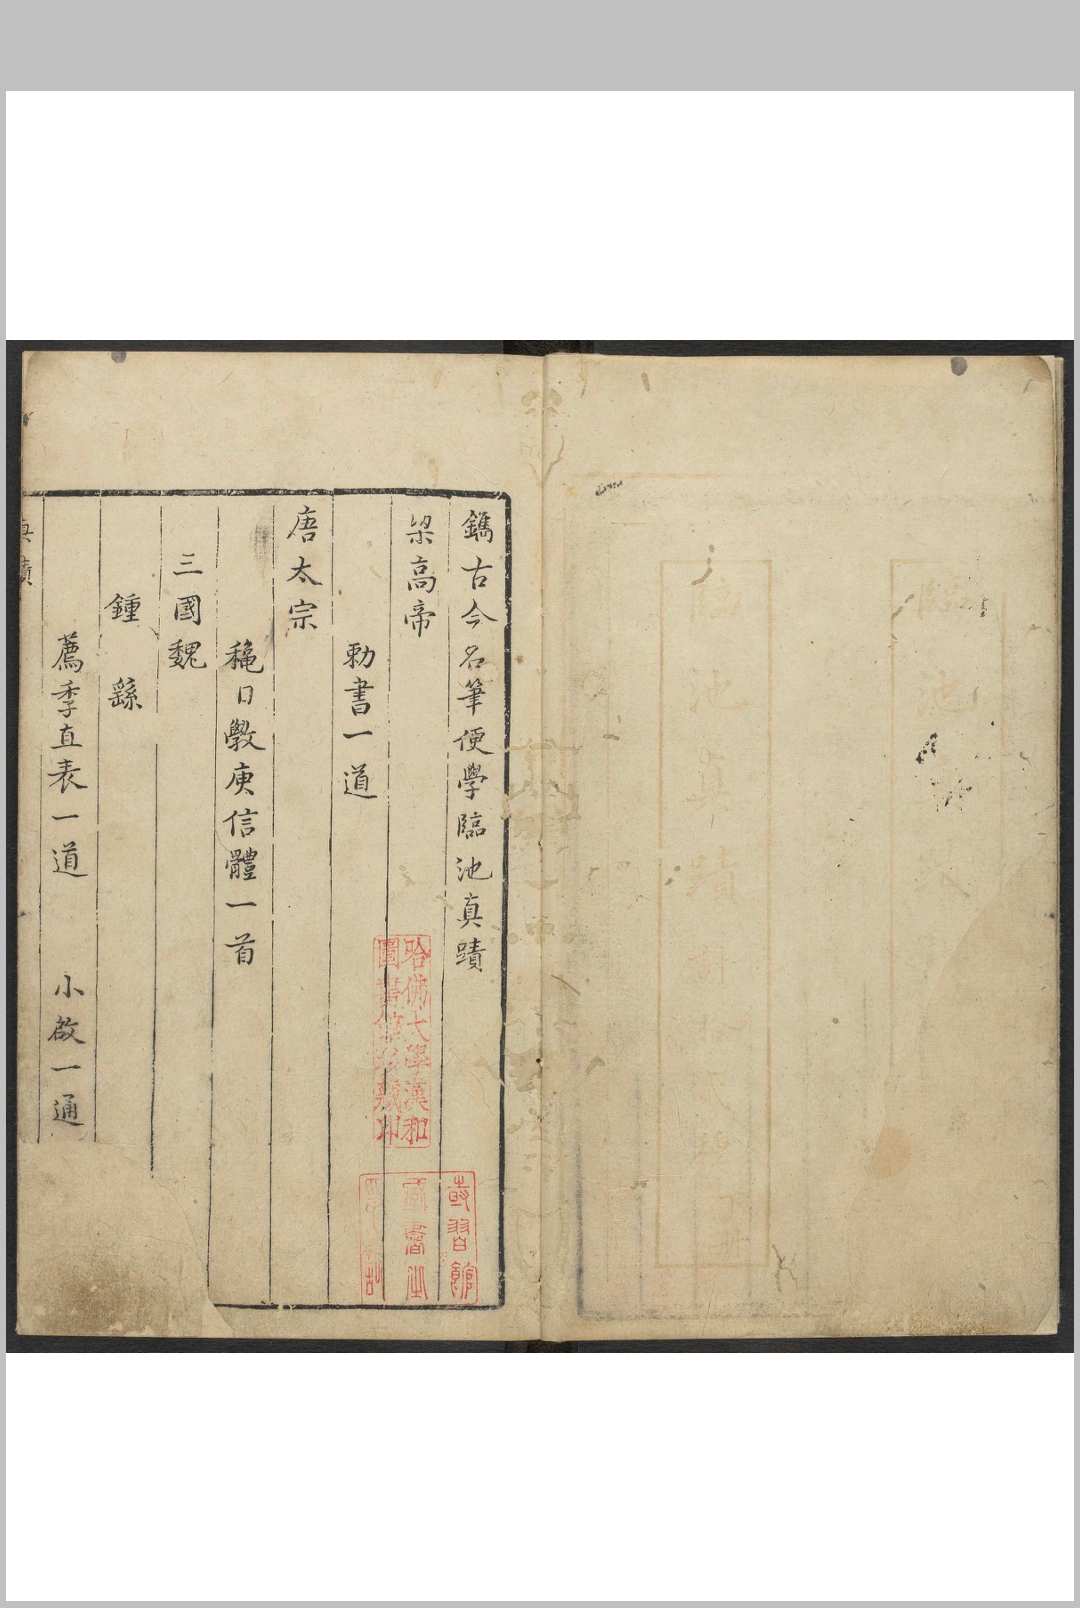 鐫古今名筆便學臨池真蹟
梁高帝
勅書一道
唐太宗
秋日斆庾信體一首
三國魏
鍾繇
薦季直表一道 小啟一通
真蹟
哈佛大學漢和
圖書館珍藏印
臨池
池真蹟